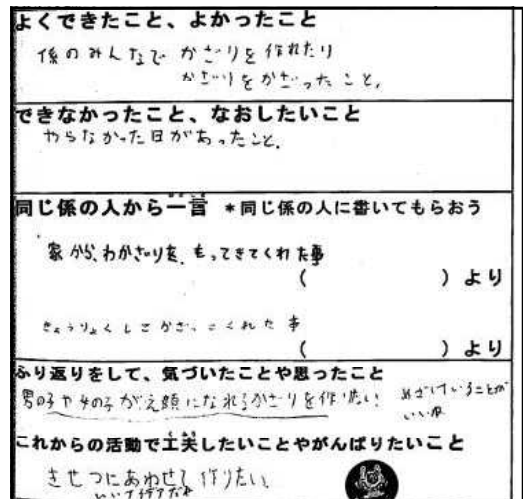 よくできたこと、よかったこと
係のみんなで かざりを作れたり
かざりをかざったこと。
できなかったこと、なおしたいこと
やらなかった日があったこと。
同じ係の人から一言 *同じ係の人に書いてもらおう
家から、わかざりを、もってきてくれた事
( ) より
きょうりょくしてかざってくれた 事
( ) より
ふり返りをして、気づいたことや思ったこと
男の子や女の子がえ顔になれるかざりを作りたい
めざしていることが
いいね
これからの活動で工夫したいことやがんばりたいこと
きせつにあわせて 作りたい。